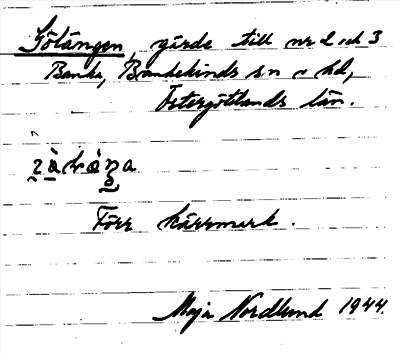 Götängen, gärde till nr 2 och 3
Banke, Bankekinds sn o hd,
Östergötlands län.
Förr kärrmark.
Maja Nordlund 1944.